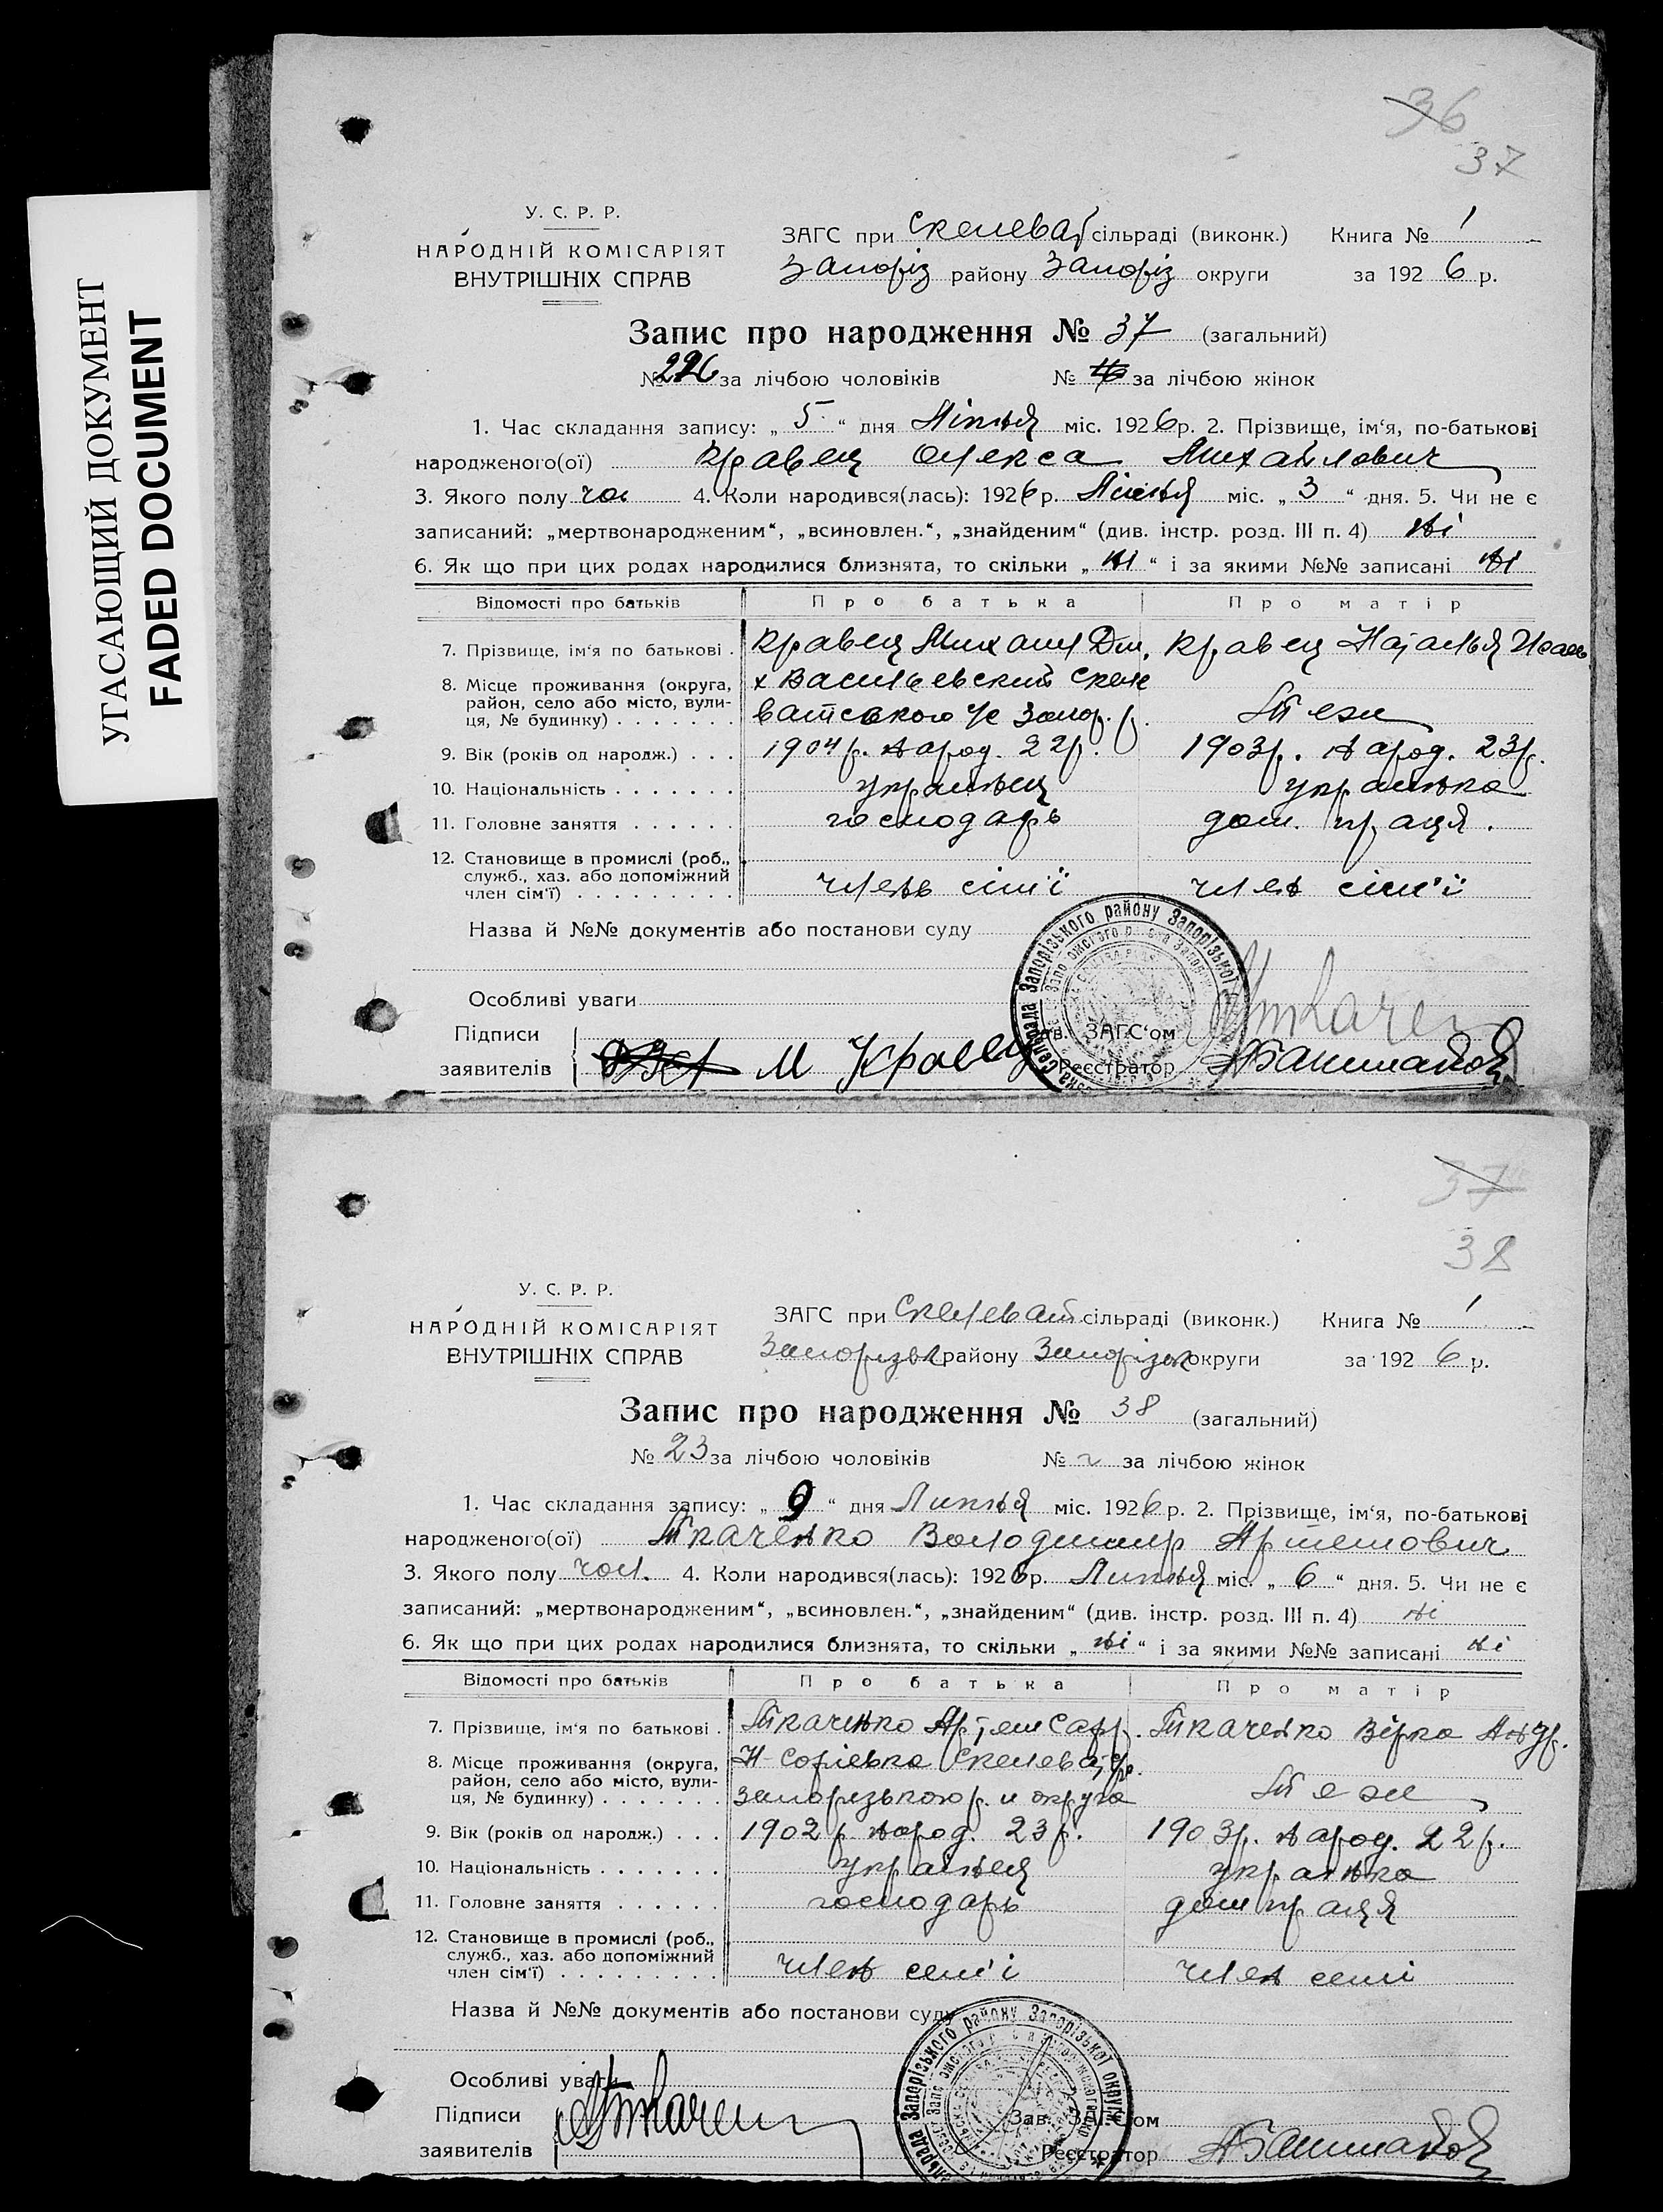 УГАСАЮЩИЙ ДОКУМЕНТ
FADED DOCUMENT
36
37
У. С. Р. Р.
НАРОДНІЙ КОМІСАРІЯТ
ВНУТРІШНІХ СПРАВ
ЗАГС при Скелеват сільраді (виконк.) Книга № 1
Запоріз району Запоріз округи за 1926 р.
Запис про народження № 37 (загальний)
№ 22 за лічбою чоловіків № за лічбою жінок
1. Час складання запису: „ 5 “ дня Ліпня міс. 1926р. 2. Прізвище, ім‘я, по-батькові
народженого(ої) Кравец Олекса Михайлович
3. Якого полу чол 4. Коли народився(лась): 1926р. Ліпня міс. „ 3 “ дня. 5. Чи не є
записаний: „мертвонародженим“, „всиновлен.“, „знайденим“ (див. інстр. розд. III п. 4) ні
6. Як що при цих родах народилися близнята, то скільки „ ні “ і за якими №№ записані ні
Відомості про батьків Про батька Про матір
7. Прізвище, ім‘я по батькові . Кравец Михаил Дм. Кравец Наталья
8. Місце проживання (округа, район, село або місто, вулиця, № будинку) . . . . . . . х Васильевский Скеле
ватського Запор. р. Теж
9. Вік (років од народж.) . . . 1904 р. народ. 22 р. 1903р. народ. 23р.
10. Національність . . . . . . . українец українка
11. Головне заняття . . . . . . господарь дом. праця.
12. Становище в промислі (роб., служб., хаз. або допоміжний член сім‘ї) . . . . . . . . . член сім'ї член сім'ї
Назва й №№ документів або постанови суду
Особливі уваги
Підписи
заявителів М Кравец
Зав. ЗАГС‘ом
Реєстратор
37
38
У. С. Р. Р.
НАРОДНІЙ КОМІСАРІЯТ
ВНУТРІШНІХ СПРАВ
ЗАГС при Скелеват сільраді (виконк.) Книга № 1
Запорізьк району Запорізьк округи за 1926 р.
Запис про народження № 38 (загальний)
№ 23 за лічбою чоловіків № за лічбою жінок
1. Час складання запису: „ 9 “ дня Липня міс. 1926р. 2. Прізвище, ім‘я, по-батькові
народженого(ої) Ткаченко Володимир Артемович
3. Якого полу чол. 4. Коли народився(лась): 1926р. Липня міс. „ 6 “ дня. 5. Чи не є
записаний: „мертвонародженим“, „всиновлен.“, „знайденим“ (див. інстр. розд. III п. 4) ні
6. Як що при цих родах народилися близнята, то скільки „ ні “ і за якими №№ записані ні
Відомості про батьків Про батька Про матір
7. Прізвище, ім‘я по батькові . Ткаченко Артем Ткаченко Вірка Андр.
8. Місце проживання (округа, район, село або місто, вулиця, № будинку) . . . . . . . Н-Софіевка Скелеват
запорізького р. и округа Теж
9. Вік (років од народж.) . . . 1902 р народ. 23 р. 1903р. народ. 22 р.
10. Національність . . . . . . . українец українка
11. Головне заняття . . . . . . господарь дом праця
12. Становище в промислі (роб., служб., хаз. або допоміжний член сім‘ї) . . . . . . . . . член семі член семі
Назва й №№ документів або постанови суду
Особливі уваги
Підписи
заявителів
Зав. ЗАГС‘ом
Реєстратор